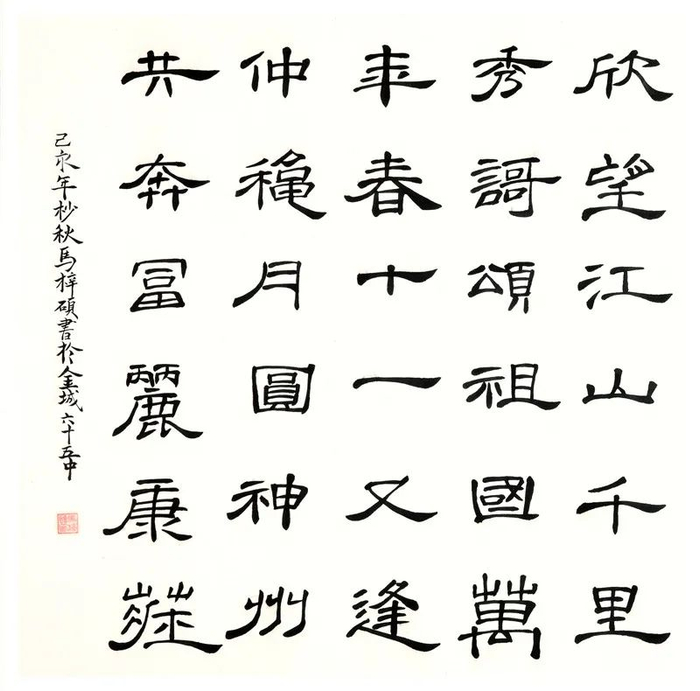 欣望江山千里
秀謌頌祖國萬
年春十一又逢
仲穐月圓神州
共奔冨麗康莊
己亥年杪秋馬梓碩書於金城六十五中